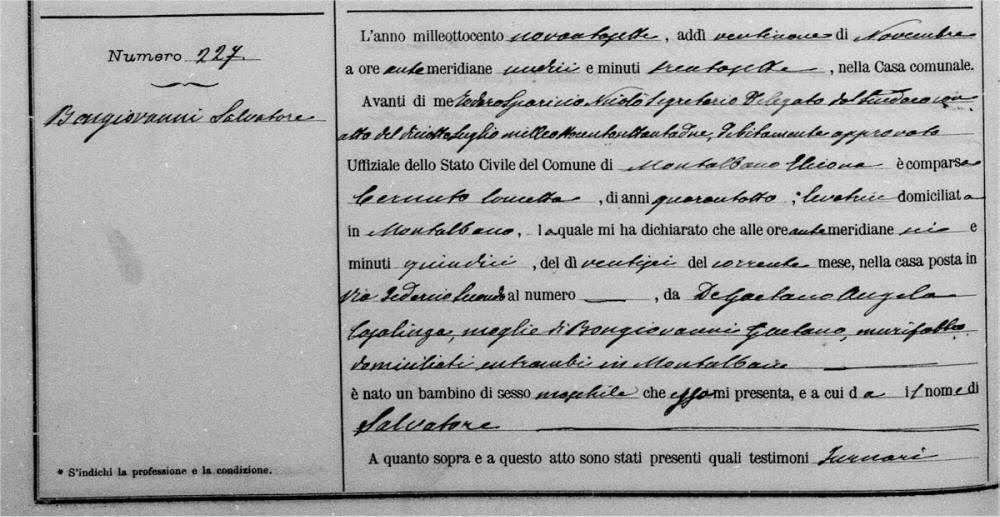 Numero 227.
Bongiovanni Salvatore
* S'indichi la professione e la condizione.
L'anno milleottocento novantasette, addì ventinove di Novembre
a ore antemeridiane undici e minuti trentasette, nella Casa comunale.
Avanti di me Nicolò Segretario Delegato dal Sindaco con
atto del diciotto Luglio milleottocentottantadue, debitamente approvato
Uffiziale dello Stato Civile del Comune di Montalbano Elicona è comparsa
Cernuto Concetta, di anni quarantotto; levatrice domiciliata
in Montalbano, la quale mi ha dichiarato che alle ore antemeridiane sei e
minuti quindici, del dì ventisei del corrente mese, nella casa posta in
Via Federico Secondo al numero —, da De Gaetano Angela
Casalinga, moglie di Bongiovanni Gaetano, murifabbro
domiciliati entrambi in Montalbano
è nato un bambino di sesso maschile che essa mi presenta, e a cui dà il nome di
Salvatore
A quanto sopra e a questo atto sono stati presenti quali testimoni Furnari